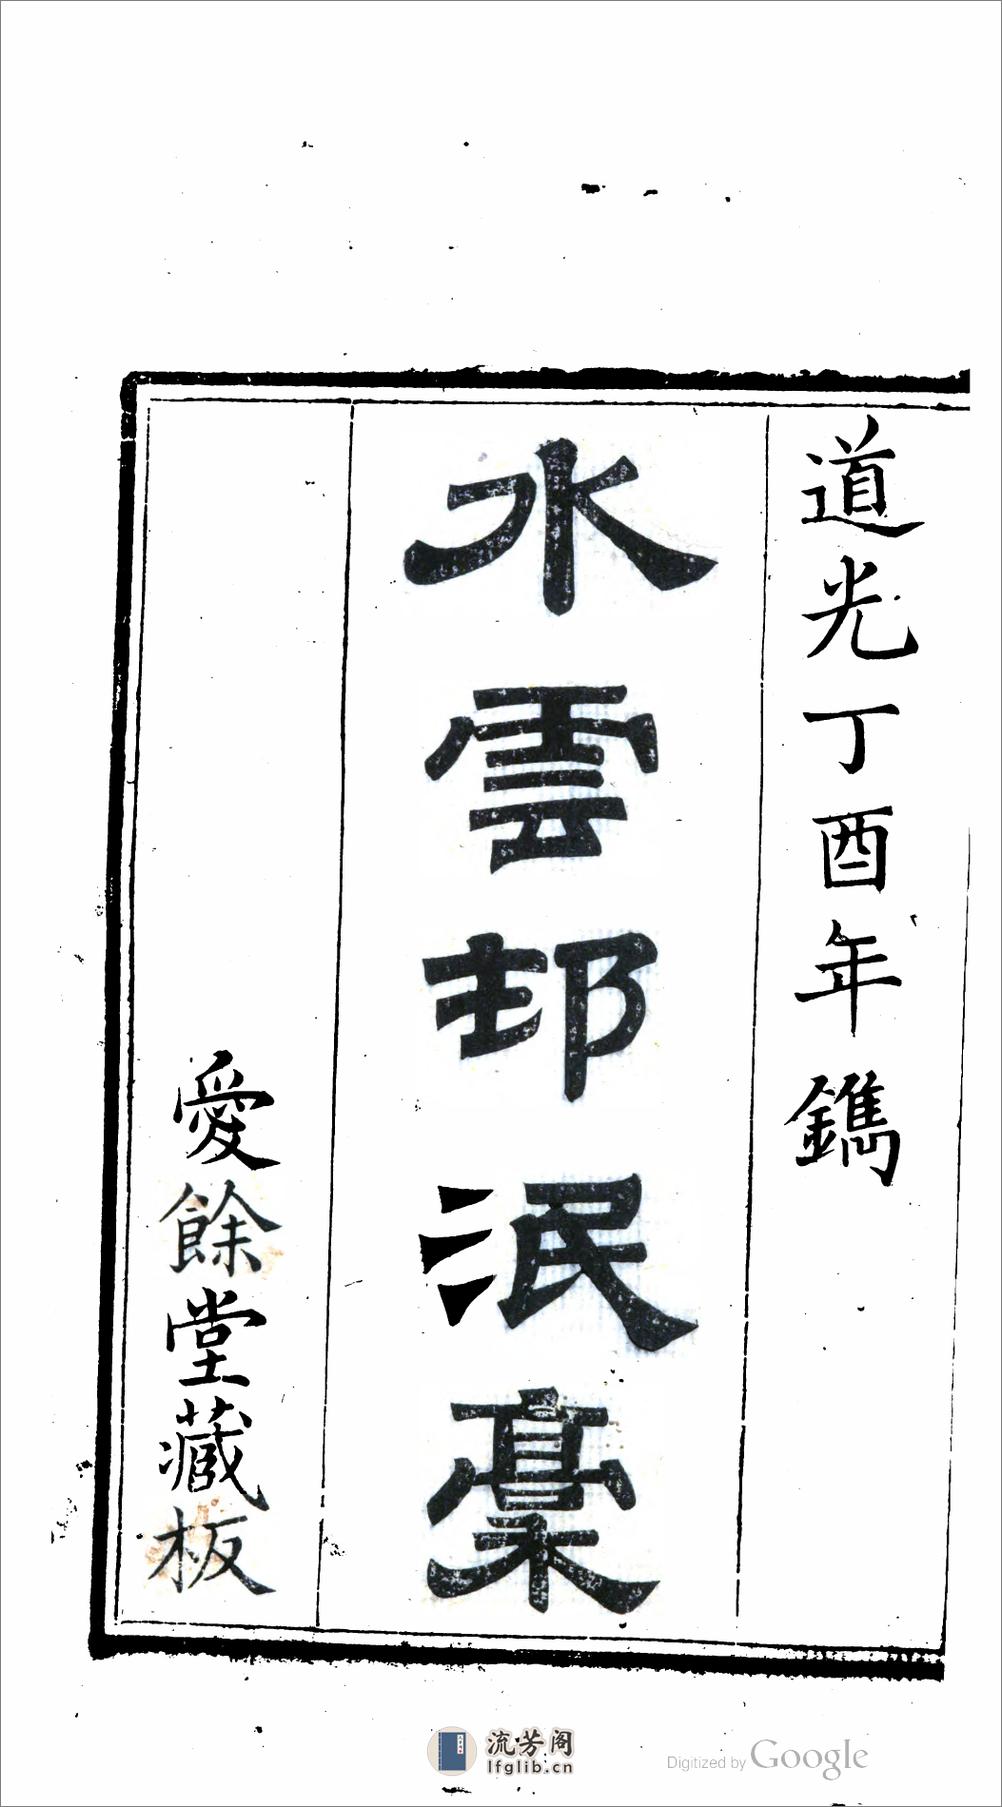 道光丁酉年鐫
水雲邨泯稾
愛餘堂藏板
流芳阁
lfglib.cn
Digitized by Google